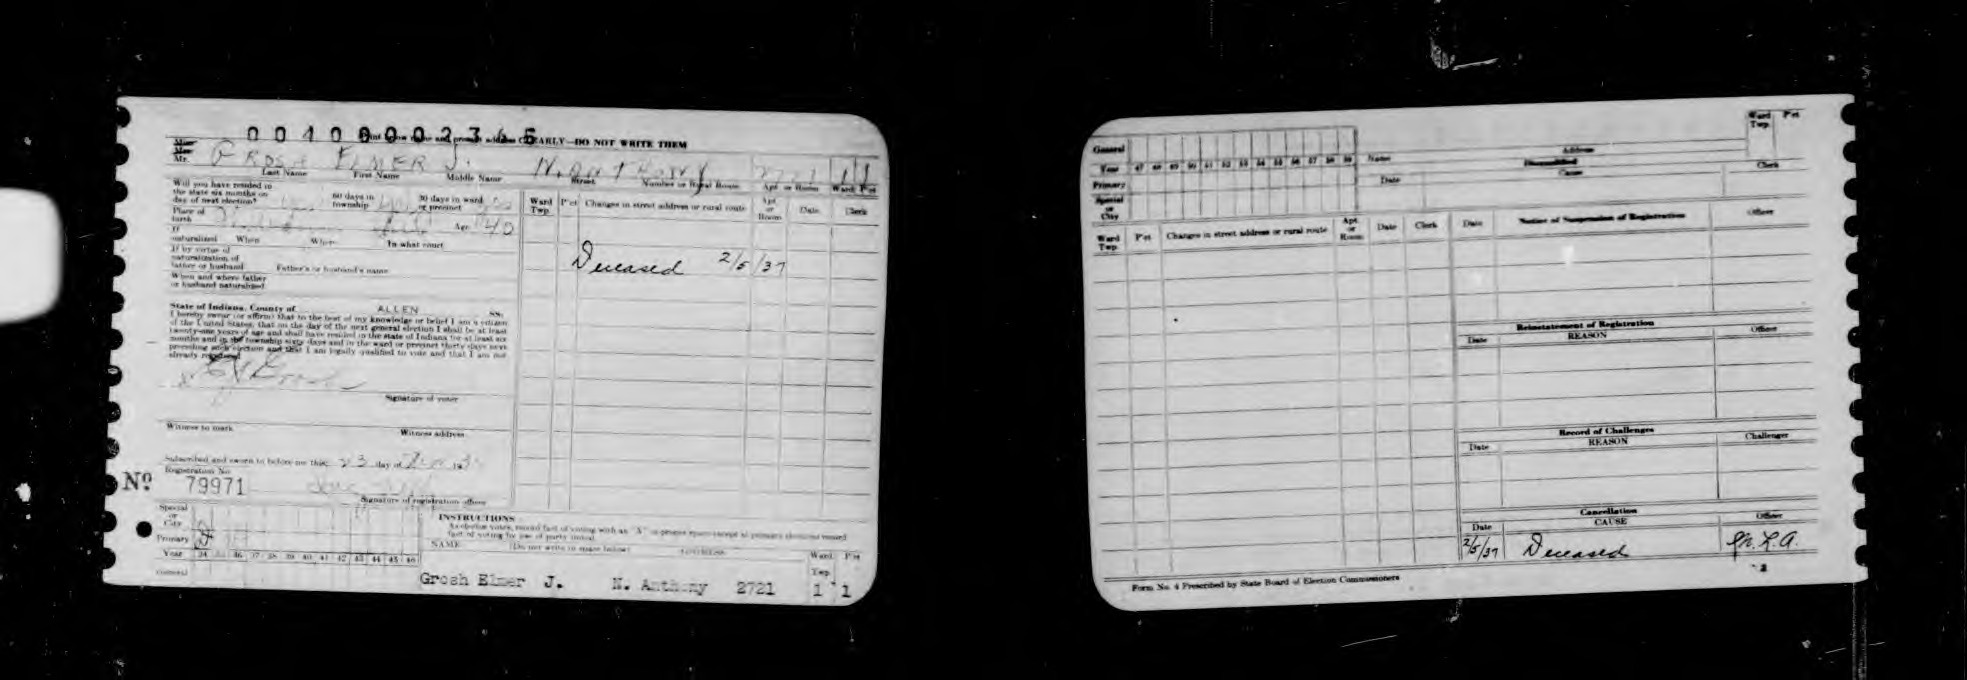 00100002366
CLEARLY—DO NOT WRITE THEM
Miss
Mrs.
Mr. GROSH ELMER J. N. ANTHONY 2721 1 1
Last Name First Name Middle Name Street Number or Rural Route Apt. or Room Ward Pct
Will you have resided in
the state six months on
day of next election? 60 days in
township 30 days in ward
or precinct
Place of
birth Age 40
If
naturalized When Where In what court
If by virtue of
naturalization of
father or husband Father's or husband's name
When and where father
or husband naturalized
State of Indiana, County of ALLEN ss.
I hereby swear (or affirm) that to the best of my knowledge or belief I am a citizen
of the United States; that on the day of the next general election I shall be at least
twenty-one years of age and shall have resided in the state of Indiana for at least six
months and in the township sixty days and in the ward or precinct thirty days next
preceding such election and that I am legally qualified to vote and that I am not
already registered
Signature of voter
Witness to mark Witness address
Subscribed and sworn to before me this 23 day of
Registration No.
Nº 79971
Signature of registration officer
Ward
Twp. P'ct Changes in street address or rural route Apt.
or
Room Date Clerk
Deceased 2/5/37
Special
or
City
Primary
Year 34 36 37 38 39 40 41 42 43 44 45 46
General
INSTRUCTIONS
NAME (Do not write in space below) ADDRESS Ward
Twp. P'ct
Grosh Elmer J. N. Anthony 2721 1 1
General
Year 47 48 49 50 51 52 53 54 55 56 57 58 59
Primary
Special
or
City
Name Address Ward
Twp. P'ct
Disqualified
Date Cause Clerk
Ward
Twp. P'ct Changes in street address or rural route Apt.
or
Room Date Clerk
Date Notice of Suspension of Registration Officer
Reinstatement of Registration
Date REASON Officer
Record of Challenges
Date REASON Challenger
Cancellation
Date CAUSE Officer
2/5/37 Deceased
Form No. 4 Prescribed by State Board of Election Commissioners